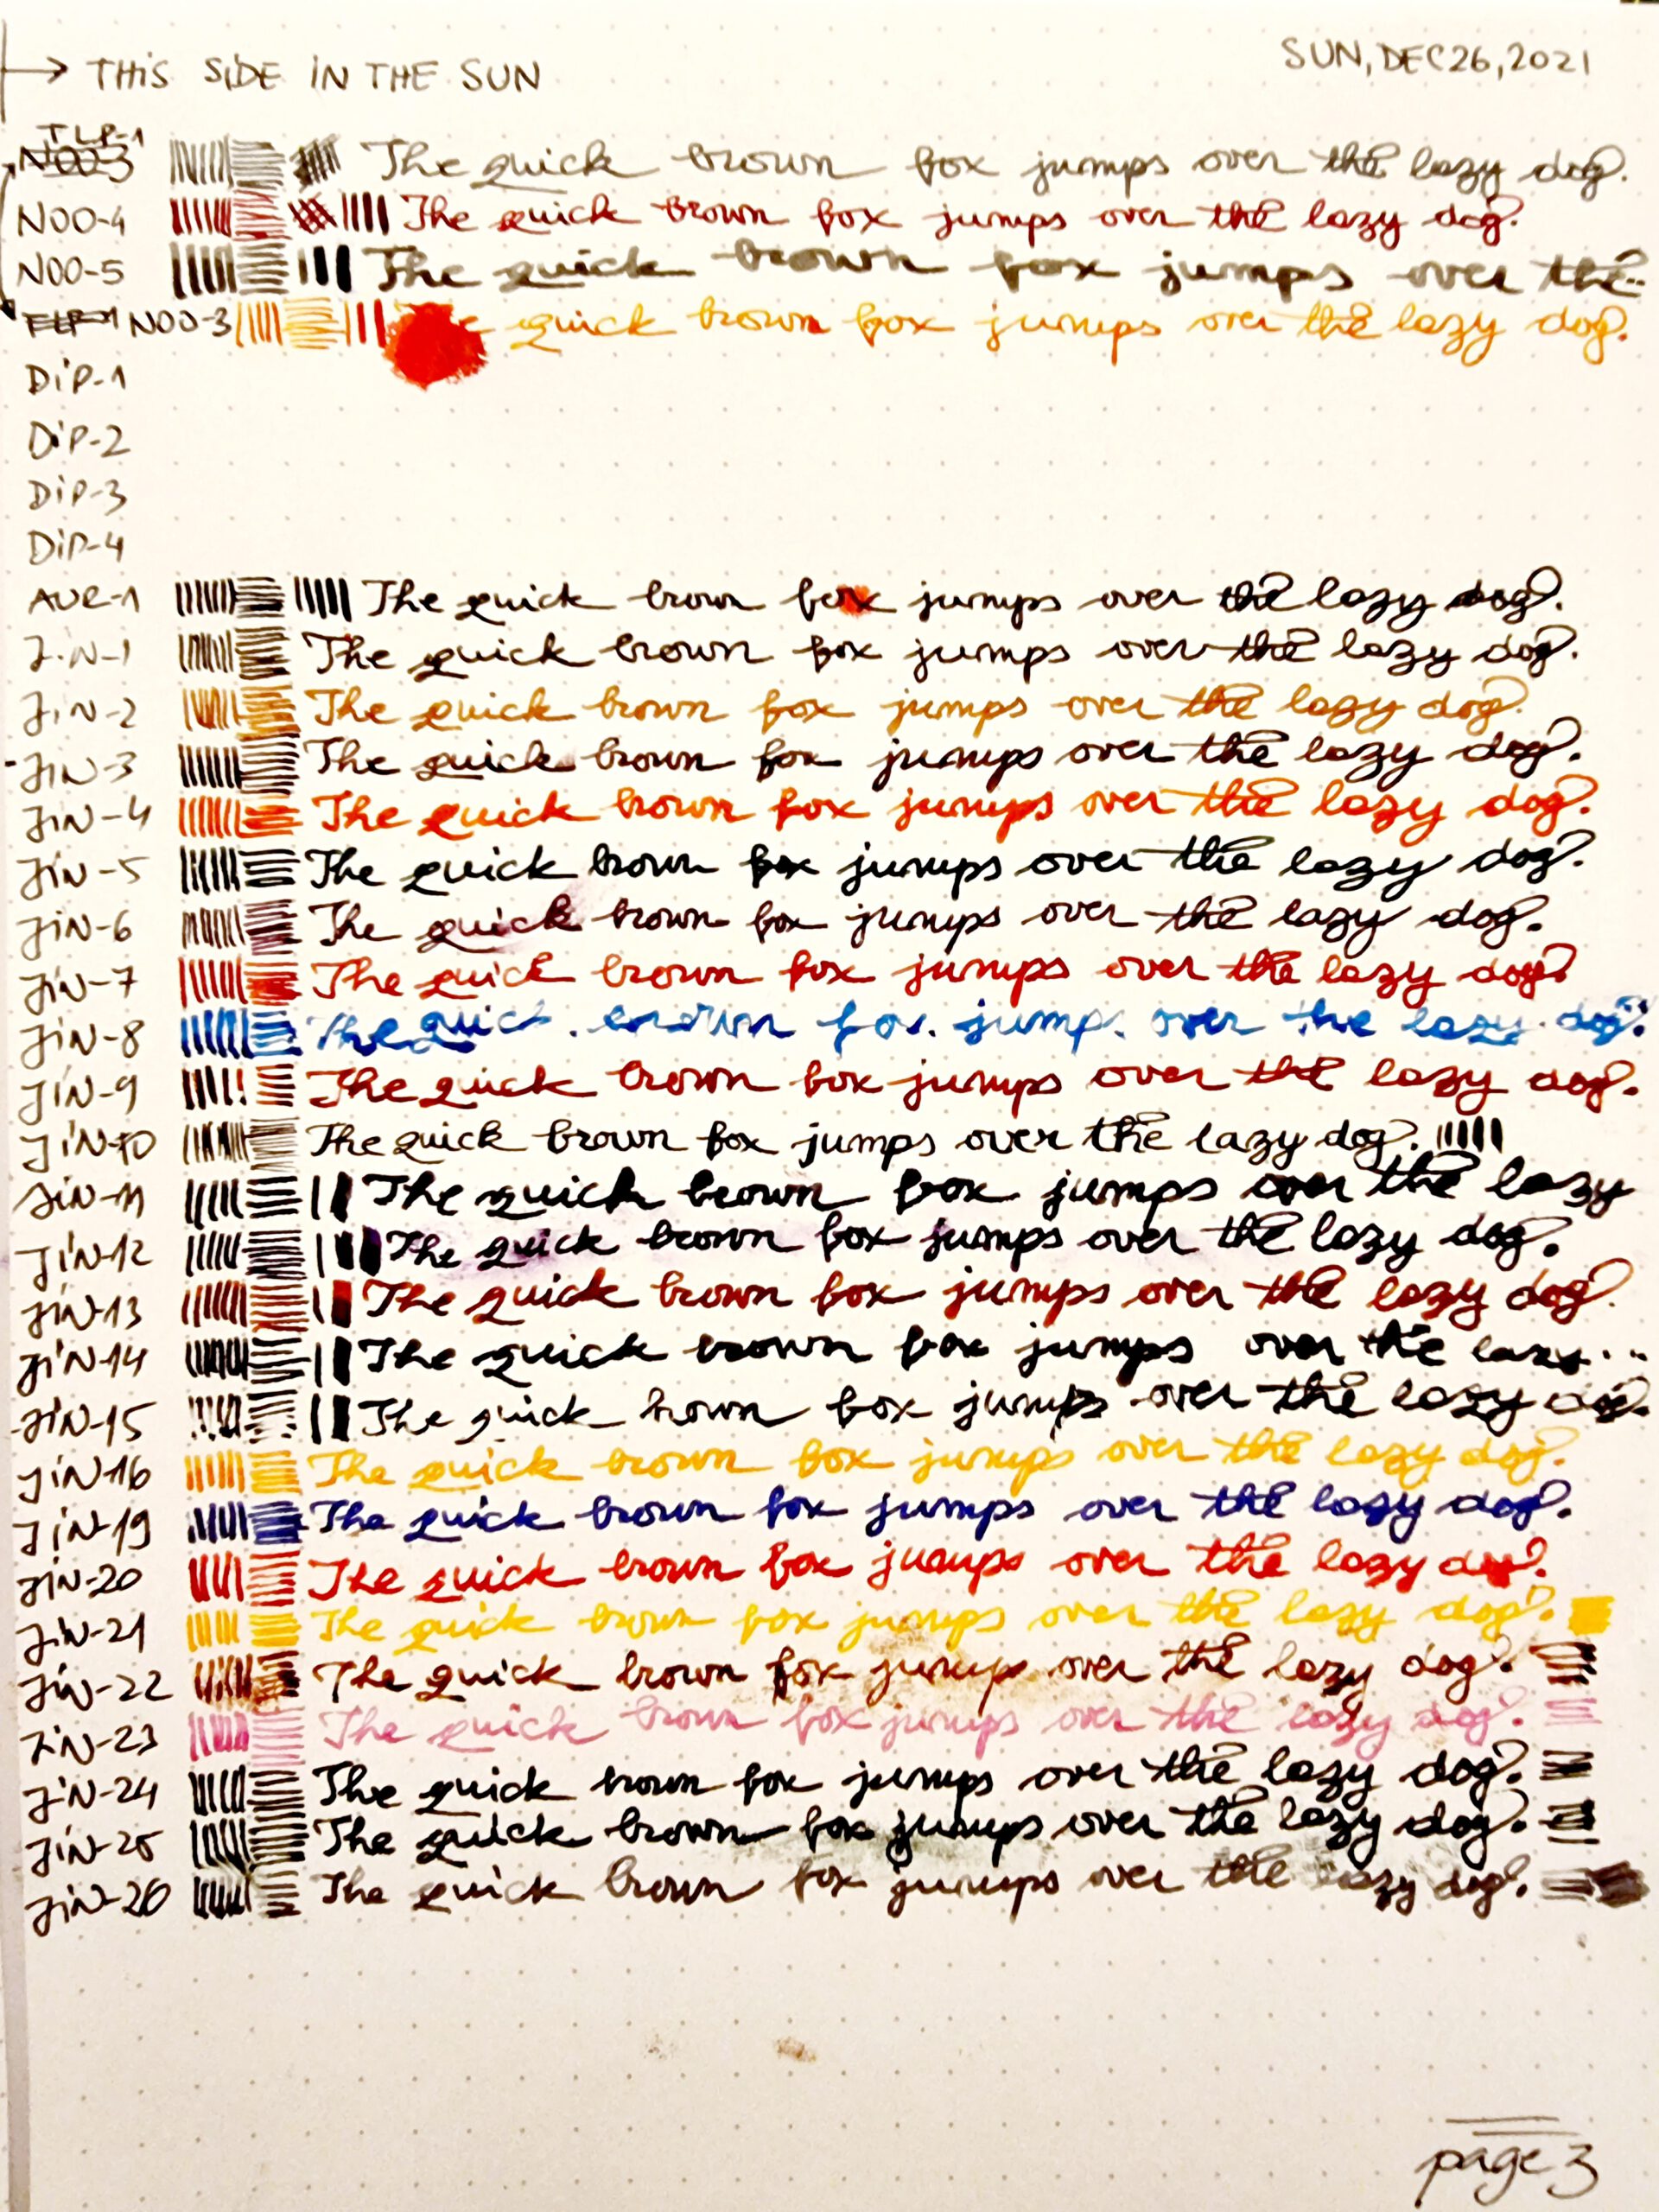 → THiS SiDE iN THE SUN
SUN, DEC 26, 2021
TLP-1
N00-3 The quick brown fox jumps over the lazy dog.
N00-4 The quick brown fox jumps over the lazy dog.
N00-5 The quick brown fox jumps over the...
TLP-1 N00-3 quick brown fox jumps over the lazy dog.
DiP-1
DiP-2
DiP-3
DiP-4
AUR-1 The quick brown fox jumps over the lazy dog.
JiN-1 The quick brown fox jumps over the lazy dog.
JiN-2 The quick brown fox jumps over the lazy dog.
JiN-3 The quick brown fox jumps over the lazy dog.
JiN-4 The quick brown fox jumps over the lazy dog.
JiN-5 The quick brown fox jumps over the lazy dog.
JiN-6 The quick brown fox jumps over the lazy dog.
JiN-7 The quick brown fox jumps over the lazy dog.
JiN-8 The quick brown fox jumps over the lazy dog.
JiN-9 The quick brown fox jumps over the lazy dog.
JiN-10 The quick brown fox jumps over the lazy dog.
JiN-11 The quick brown fox jumps over the lazy
JiN-12 The quick brown fox jumps over the lazy dog.
JiN-13 The quick brown fox jumps over the lazy dog.
JiN-14 The quick brown fox jumps over the lazy...
JiN-15 The quick brown fox jumps over the lazy dog.
JiN-16 The quick brown fox jumps over the lazy dog.
JiN-19 The quick brown fox jumps over the lazy dog.
JiN-20 The quick brown fox jumps over the lazy dog.
JiN-21 The quick brown fox jumps over the lazy dog.
JiN-22 The quick brown fox jumps over the lazy dog.
JiN-23 The quick brown fox jumps over the lazy dog.
JiN-24 The quick brown fox jumps over the lazy dog.
JiN-25 The quick brown fox jumps over the lazy dog.
JiN-26 The quick brown fox jumps over the lazy dog.
page 3